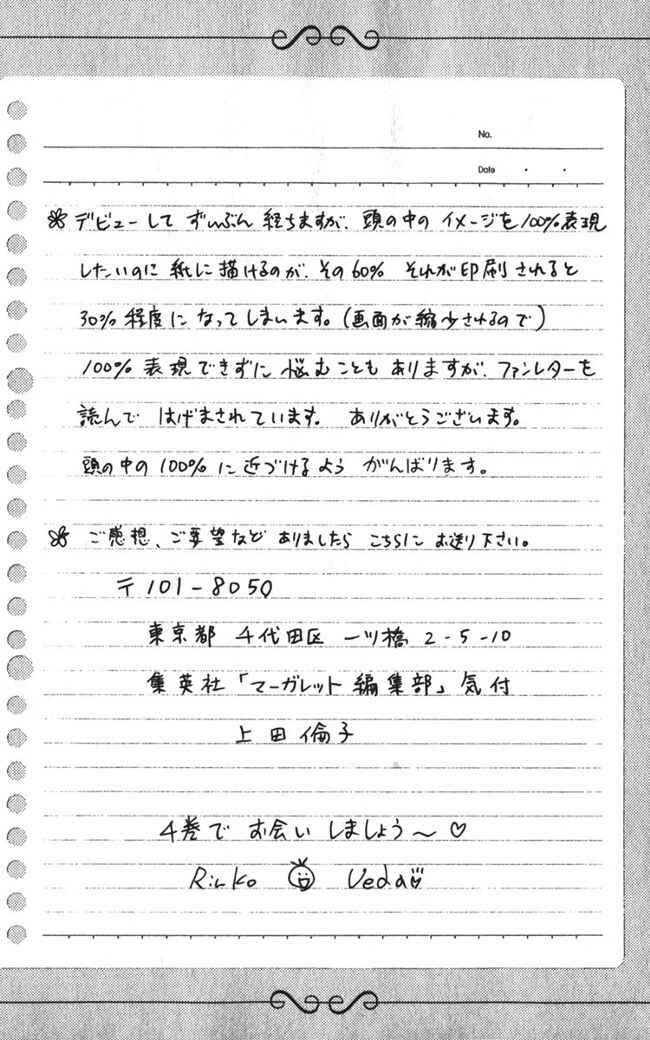 No.
Date ・ ・
デビューして ずいぶん 経ちますが、頭の中の イメージを100%表現
したいのに 紙に描けるのが、その60% それが印刷 されると
30%程度に なってしまいます。(画面が縮少されるので)
100% 表現できずに 悩むことも ありますが、ファンレターを
読んで はげまされています。 ありがとうございます。
頭の中の 100% に近づけるよう がんばります。
ご感想、ご要望など ありましたら こちらに お送り下さい。
〒101-8050
東京都 千代田区 一ツ橋 2-5-10
集英社「マーガレット編集部」気付
上田倫子
4巻で お会いしましょう〜♡
Rinko Ueda